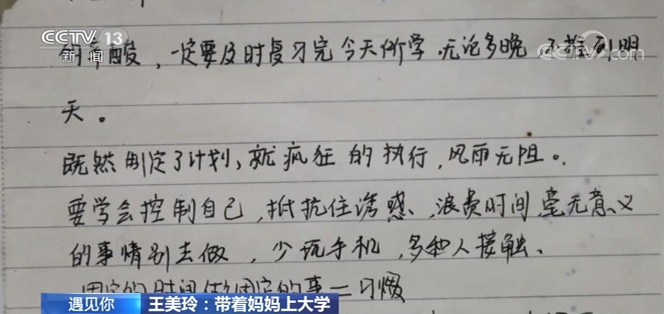 CCTV 13
新闻
央视网
的辛酸，一定要及时复习完今天所学，无论多晚 不推到明
天。
既然制定了计划，就疯狂的执行，风雨无阻。
要学会控制自己，抵抗住诱惑、浪费时间毫无意义
的事情别去做，少玩手机，多和人接触、
固定的时间做固定的事＝习惯
遇见你 王美玲：带着妈妈上大学